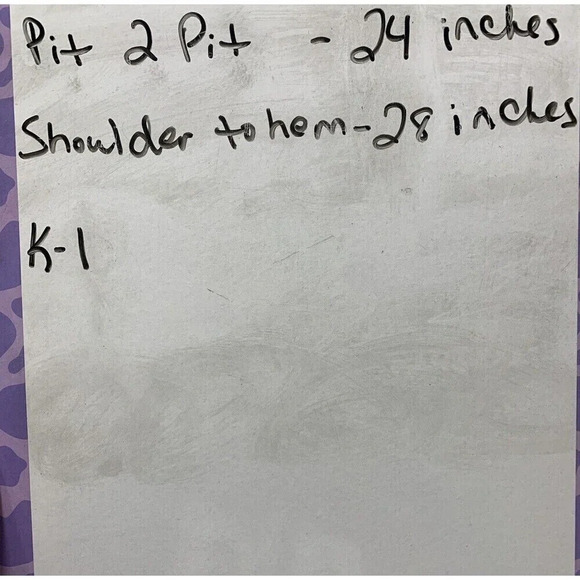 Pit 2 Pit - 24 inches
Shoulder to hem - 28 inches
K-1